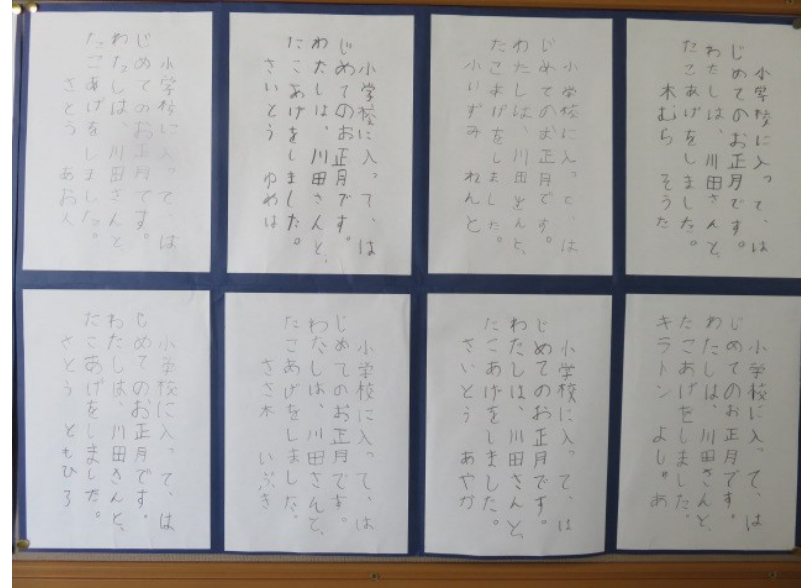 小学校に入って、は
じめてのお正月です。
わたしは、川田さんと、
たこあげをしました。
木むら そうた
小学校に入って、は
じめてのお正月です。
わたしは、川田さんと、
たこあげをしました。
小いずみ れんと
小学校に入って、は
じめてのお正月です。
わたしは、川田さんと、
たこあげをしました。
さいとう ゆめは
小学校に入って、は
じめてのお正月です。
わたしは、川田さんと、
たこあげをしました。
さとう あお人
小学校に入って、は
じめてのお正月です。
わたしは、川田さんと、
たこあげをしました。
キラトン よしゅあ
小学校に入って、は
じめてのお正月です。
わたしは、川田さんと、
たこあげをしました。
さいとう あやか
小学校に入って、は
じめてのお正月です。
わたしは、川田さんと、
たこあげをしました。
ささ木 いぶき
小学校に入って、は
じめてのお正月です。
わたしは、川田さんと、
たこあげをしました。
さとう ともひろ